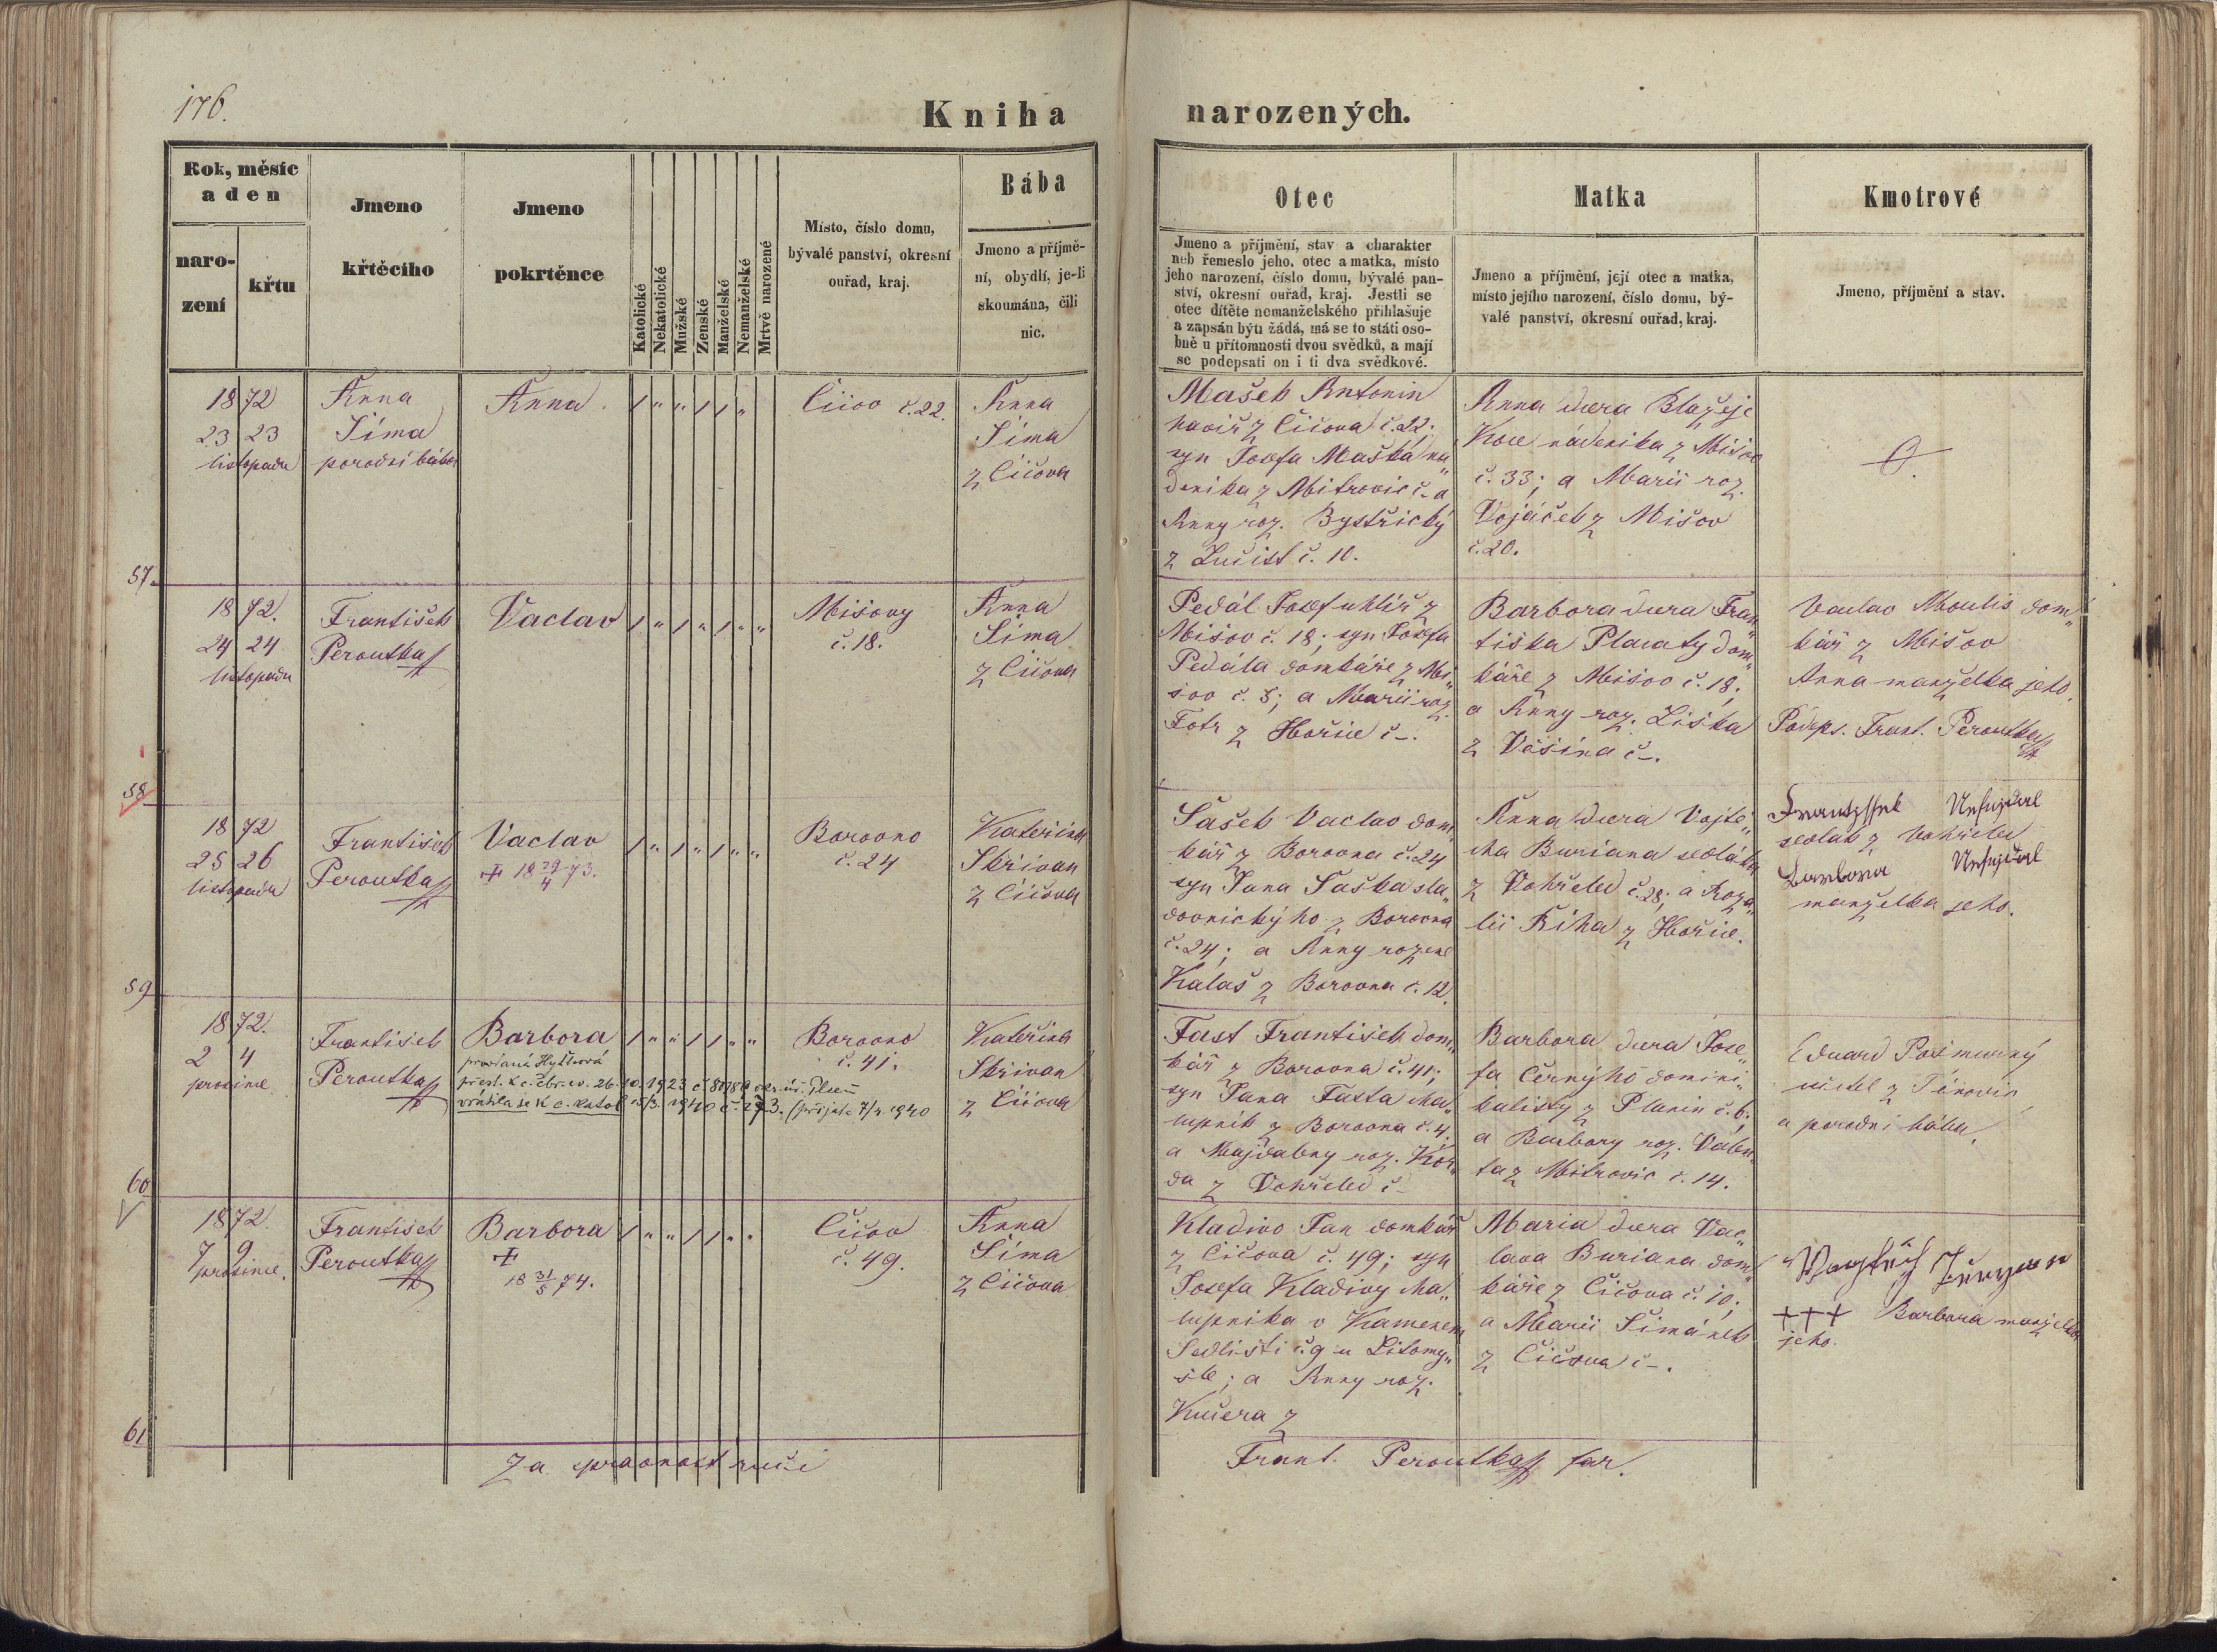 176.
Kniha narozených.
Rok, měsíc
a den
naro-
zení
křtu
Jmeno
křtěcího
Jmeno
pokrtěnce
Katolické
Nekatolické
Mužské
Ženské
Manželské
Nemanželské
Mrtvě narozené
Místo, číslo domu,
bývalé panství, okresní
ouřad, kraj.
Bába
Jmeno a příjmě-
ní, obydlí, je-li
skoumána, čili
nic.
Otec
Jmeno a příjmění, stav a charakter
neb řemeslo jeho, otec a matka, místo
jeho narození, číslo domu, bývalé pan-
ství, okresní ouřad, kraj. Jestli se
otec dítěte nemanželského přihlašuje
a zapsán býti žádá, má se to státi oso-
bně u přítomnosti dvou svědků, a mají
se podepsati on i ti dva svědkové.
Matka
Jmeno a příjmění, její otec a matka,
místo jejího narození, číslo domu, bý-
valé panství, okresní ouřad, kraj.
Kmotrové
Jmeno, příjmění a stav.
1872
23 23
listopadu
Anna
Šíma
porodní bába
Anna
Čičov č.22.
Anna
Šíma
z Čičova
Mašek Antonin
havíř z Čičova č.22.
syn Josefa Maška ná
denika z Mitrovic č. a
Anny roz. Bystřický
z Lučist č. 10.
Anna dcera Blažeje
Koce nádenika z Mišov
č. 33; a Marii roz.
Vojáček z Mišov
č.20.
57.
1872.
24 24
listopadu
František
Peroutka
Vaclav
Mišovy
č. 18.
Anna
Šíma
z Čičova
Pedál Josef uhlíř z
Mišov č. 18; syn Josefa
Pedála domkáře z Mi„
šov č. 5; a Marii roz.
Fotr z Hořic č–.
Barbora dcera Fran„
tiška Placaty dom„
káře z Mišov č. 18;
a Anny roz. Liška
z Věšína č–.
Vaclav Moulis dom„
kář z Mišov
Anna manželka jeho.
Podeps. Frant. Peroutka
58
1872
25 26
listopadu
František
Peroutka
Vaclav
+ 18 29/4 73.
Borovno
č. 24
Kateřina
Skřivan
z Čičova
Sašek Vaclav dom„
kář z Borovna č.24
syn Jana Saška sla„
dovnickýho z Borovna
č.24; a Anny rozené
Kalaš z Borovna č. 12.
Anna dcera Vojtě„
cha Buriana sedláka
z Vohřeled č.28; a Roza„
lii Říha z Hořic.
sedlák z Vohřeled
Barbora
manželka jeho.
59
1872.
2 4
prosince
František
Peroutka
Barbora
přest. k c. čbr. ev. 26. 10. 1923 č. 81180 okr. úř. Plzeň
vrátila se k c. katol. 15/3. 1940 č. 293. (přijata 7/4. 1940
Borovno
č. 41.
Kateřina
Skřivan
z Čičova
Fast František dom„
kář z Borovna č. 41;
syn Jana Fasta cha„
lupník z Borovna č. 4.
a Majdaleny roz. Kor„
da z Vohřeled č–
Barbora dcera Jose„
fa Černýho domini„
kalisty z Planin č. 6;
a Barbory roz. Valen„
ta z Mitrovic č. 14.
Eduard
učitel z Těnovic
a porodní bába.
60
1872.
7 9
prosince.
František
Peroutka
Barbora
+
18 31/5 74.
Čičov
č. 49.
Anna
Šíma
z Čičova
Kladivo Jan domkář
z Čičova č. 49; syn
Josefa Kladivy cha„
lupníka v Kamenem
Sedlišti č.9 u Litomy„
šle; a Anny roz.
Kučera z
Maria dcera Vac„
lava Buriana dom„
káře z Čičova č. 10;
a Marii Šimánek
z Čičova č–.
+++ Barbora manželka
jeho.
61
Za správnost ručí
Frant. Peroutka far.